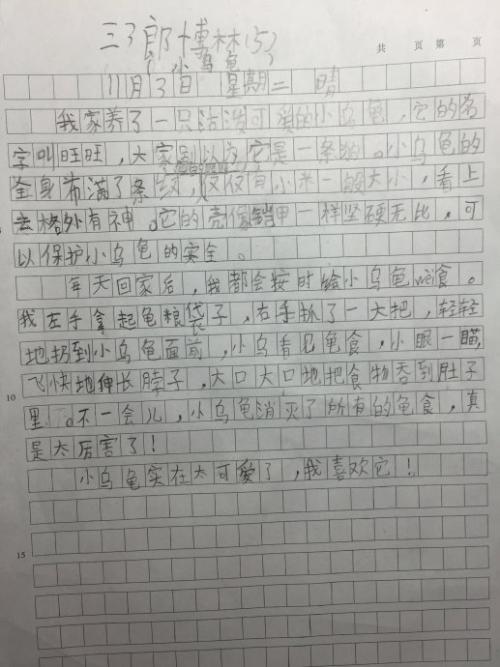 三3郎博林(5)
(小乌龟)
共 页 第 页
11月3日 星期二 晴
我家养了一只活泼可爱的小乌龟,它的名
字叫旺旺,大家别以为它是一条狗。小乌龟的
全身布满了条纹,仅有小米一般大小,看上
去格外有神。它的壳像铠甲一样坚硬无比,可
以保护小乌龟的安全。
每天回家后,我都会按时给小乌龟wèi食。
我左手拿起龟粮袋子,右手抓了一大把,轻轻
地扔到小乌龟面前,小乌看见龟食,小眼一瞄,
飞快地伸长脖子,大口大口地把食物吞到肚子
10
里。不一会儿,小乌龟消灭了所有的龟食,真
是太厉害了!
小乌龟实在太可爱了,我喜欢它!
15